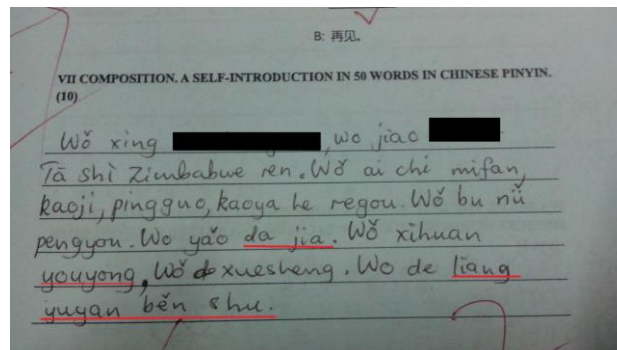 B: 再见。
VII COMPOSITION. A SELF-INTRODUCTION IN 50 WORDS IN CHINESE PINYIN.
(10)
Wǒ xing , wo jiao
Tā shì Zimbabwe ren. Wǒ ai chi mifan,
kaoji, pingguo, kaoya he regou. Wǒ bu nǚ
pengyou. Wo yǎo da jia. Wǒ xihuan
youyong, Wǒ xuesheng. Wo de liang
yuyan běn shu.